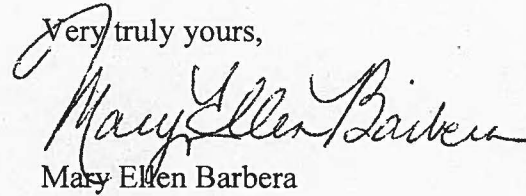 Very truly yours,
Mary Ellen Barbera
Mary Ellen Barbera